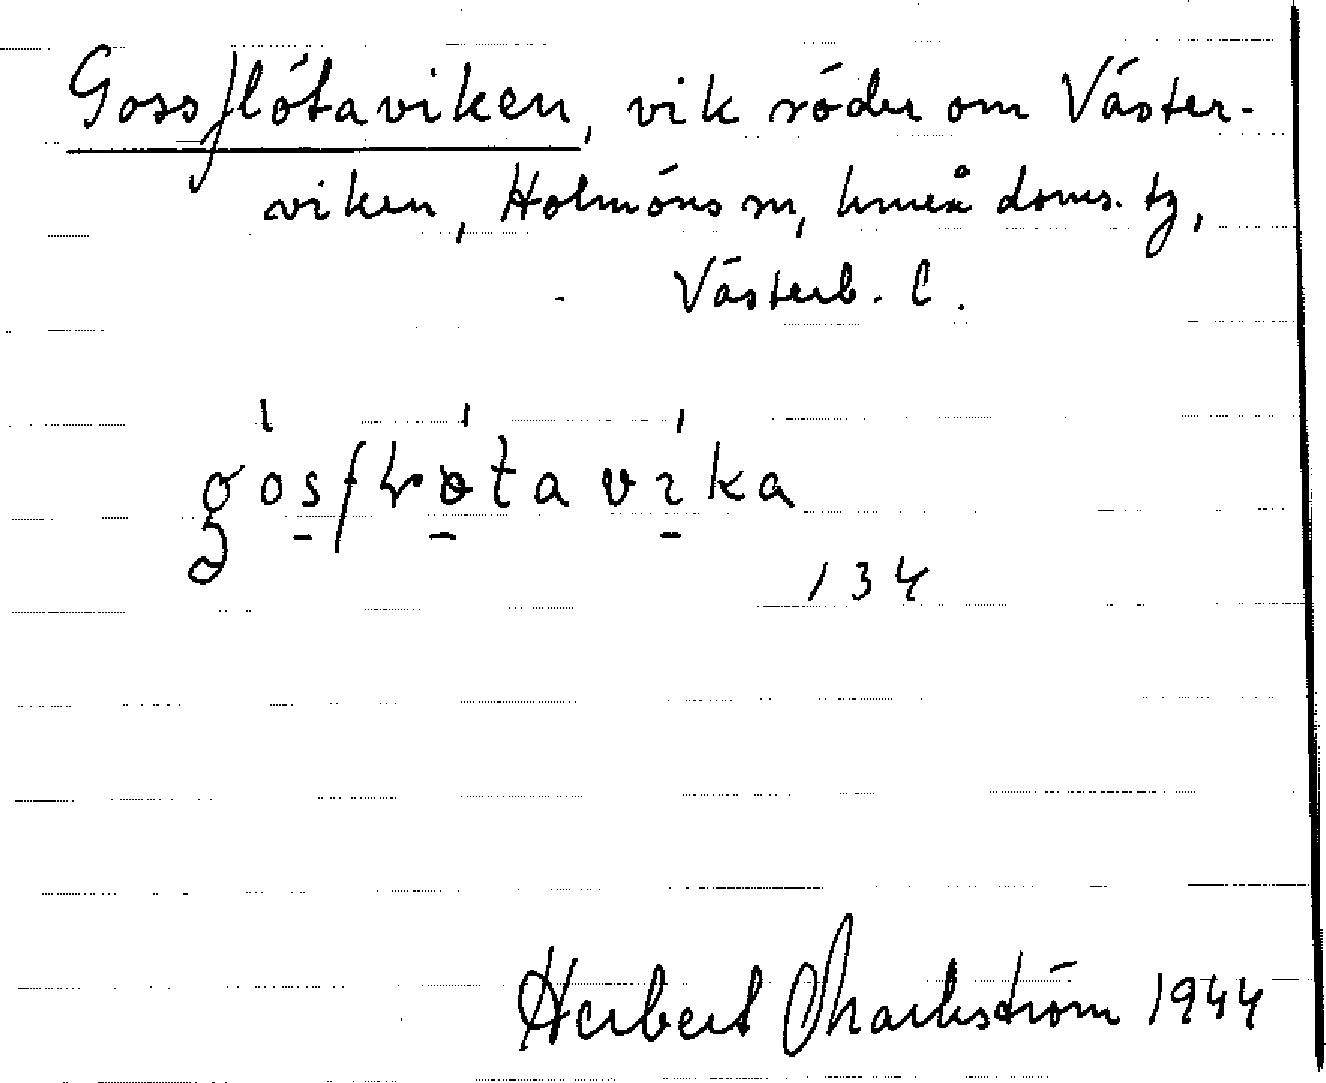 Gossflötaviken, vik söder om Väster-
viken, Holmöns sn, Umeå doms. tg,
Västerb. l.
134
Herbert Markström 1944